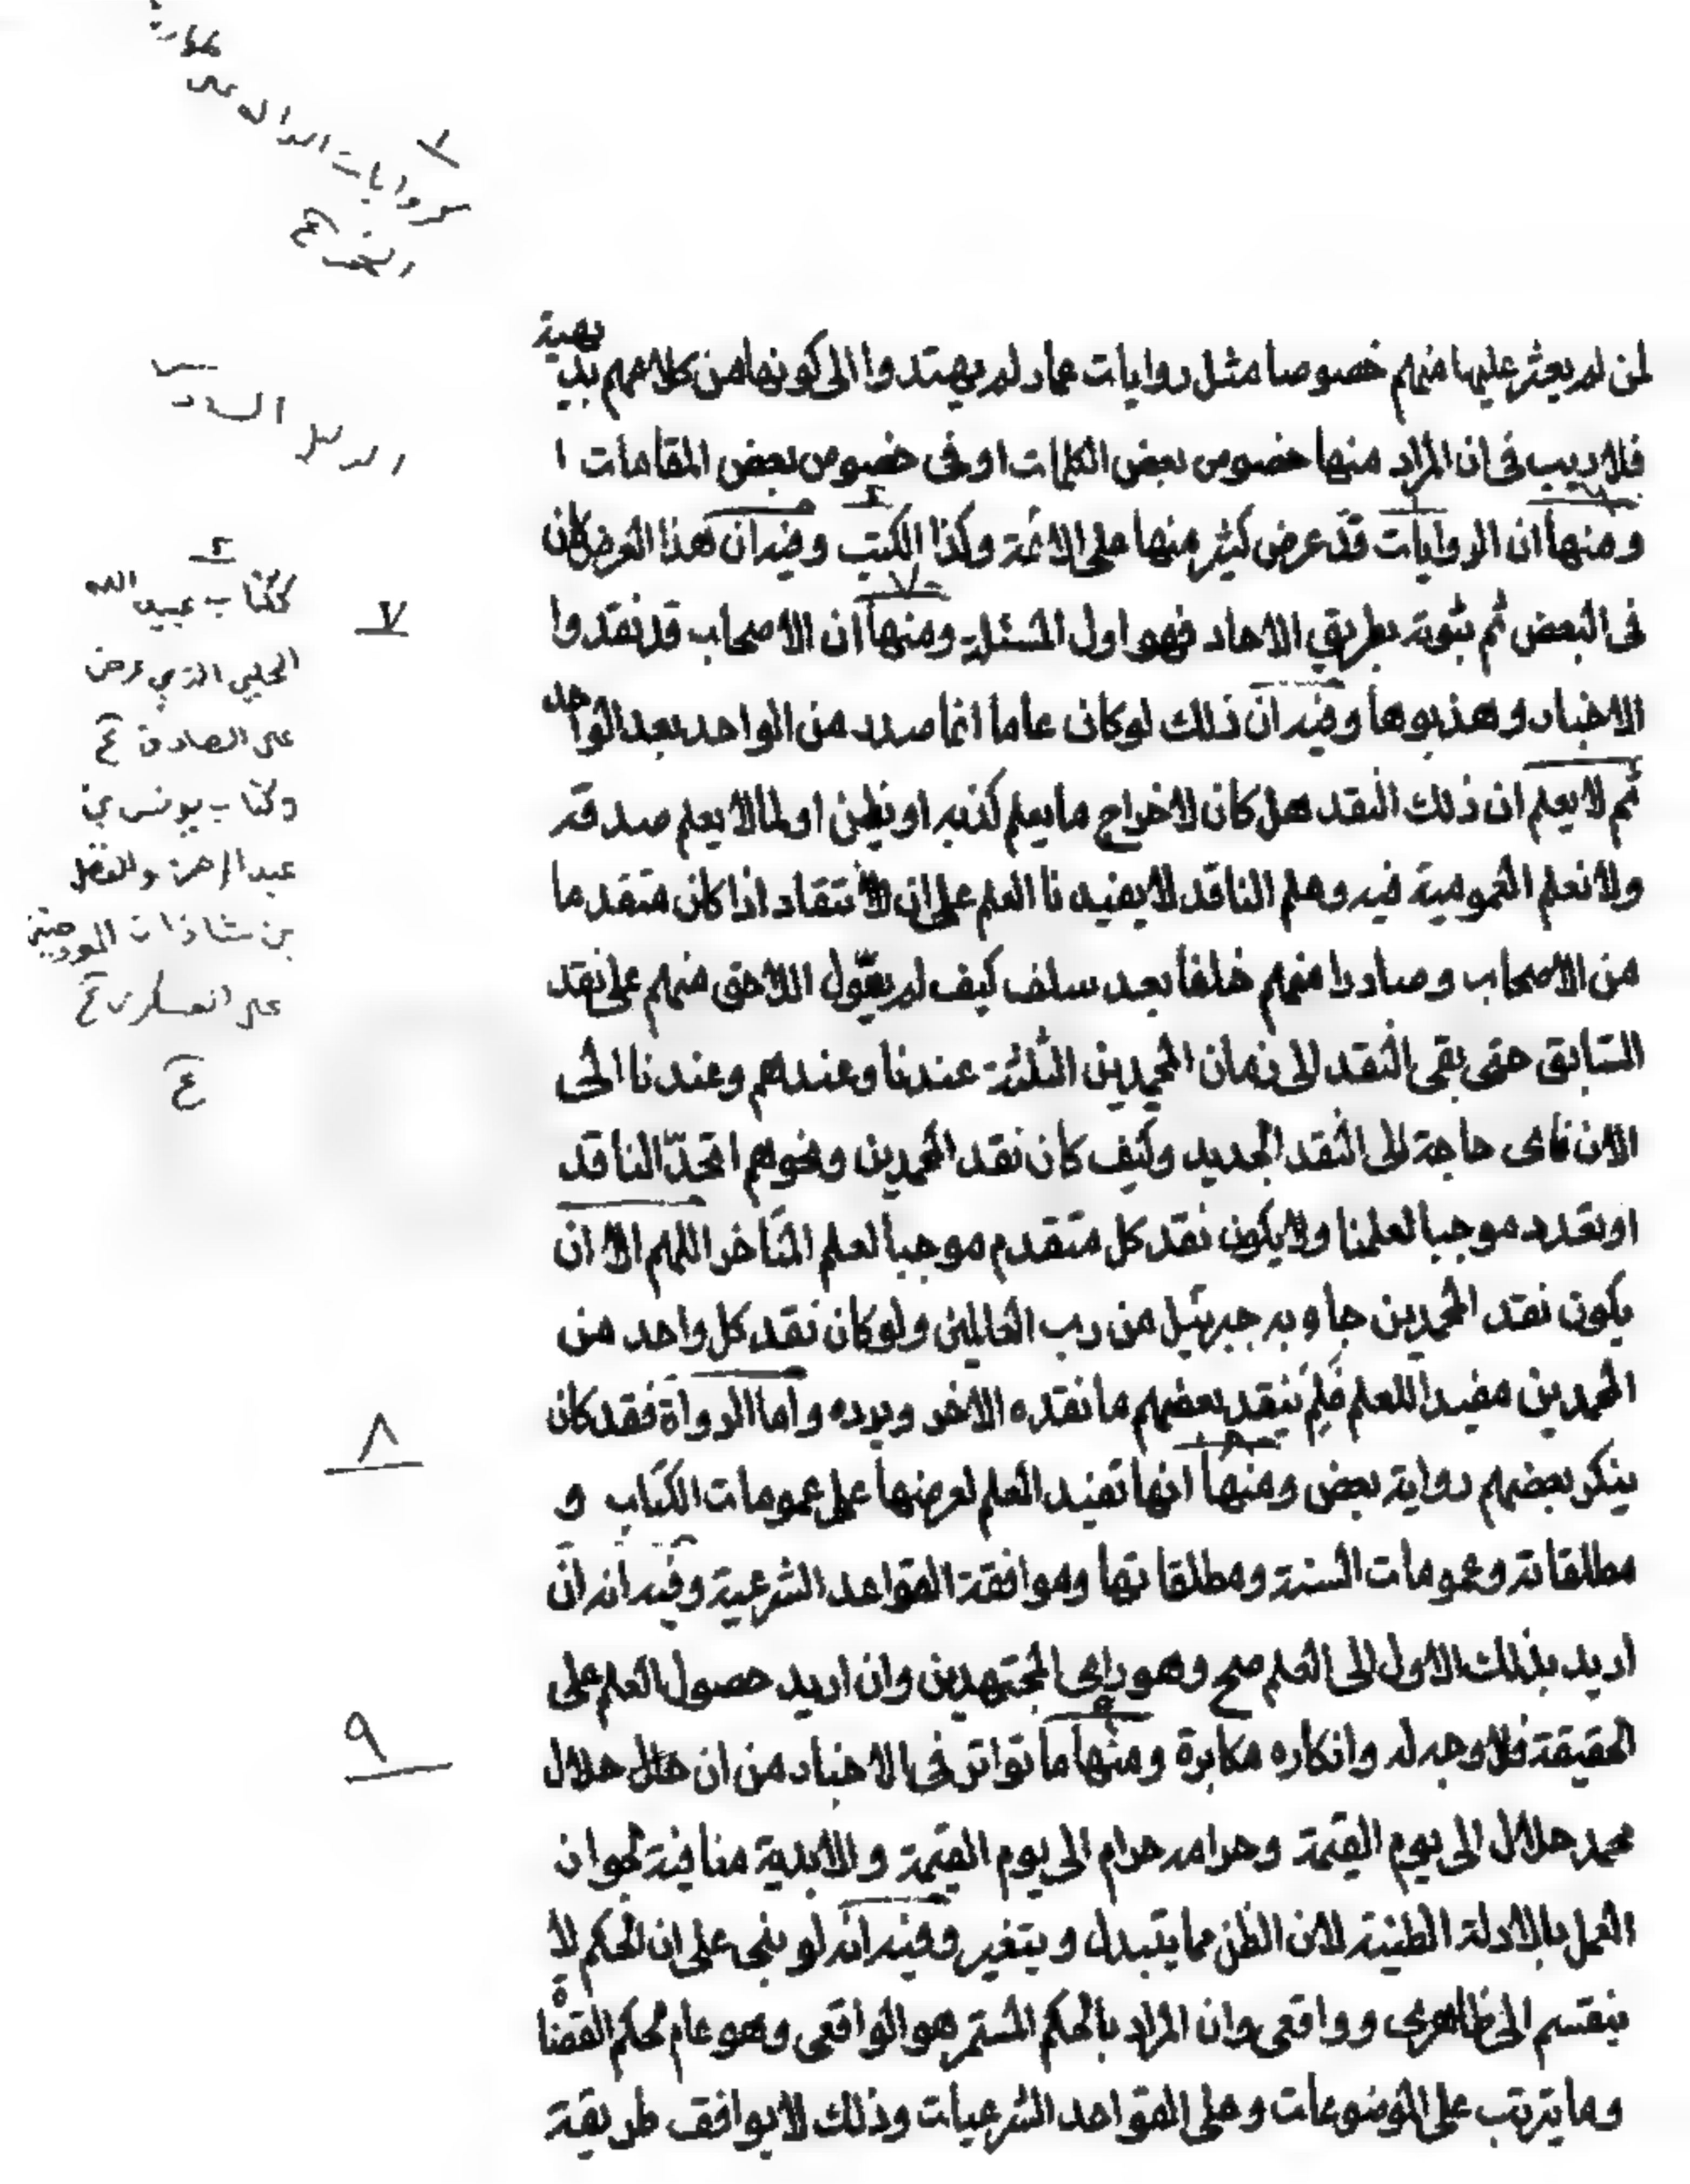 لمن لم يعثر عليها منهم خصوصا مثل روايات عمار لم يهتدوا الى كونها من كلامهم بديهية
فلا ريب فى ان المراد منها خصوص بعض الكلمات او فى خصوص بعض المقامات
ومنها ان الروايات قد عرض كثير منها على الائمة وكذا الكتب وفيه ان هذا العرض كان
فى البعض ثم ثبوته بطريق الاحاد فهو اول المسئلة ومنها ان الاصحاب قد نقدوا
الاخبار وهذبوها وفيه ان ذلك لو كان عاما انما صدر من الواحد بعد الواحد
ثم لا يعلم ان ذلك النقد هل كان لاخراج ما يعلم كذبه او يظن او لما لا يعلم صدقه
ولا نعلم العمومية فيه وعلم الناقد لا يفيدنا العلم على ان الانتقاد اذا كان متقدما
من الاصحاب وصادرا منهم خلفا بعد سلف كيف لم يعول اللاحق منهم على نقد
السابق حتى بقى النقد الى زمان المحمدين الثلثة عندنا وعندهم وعندنا الى
الان فاى حاجة الى النقد الجديد وكيف كان نقد المحمدين ونحوهم اتحد الناقد
او تعدد موجبا لعلمنا ولا يكون نقد كل متقدم موجبا لعلم المتاخر اللهم الا ان
يكون نقد المحمدين جاء به جبرئيل من رب العالمين ولو كان نقد كل واحد من
المحمدين مفيدا للعلم فلم ينقد بعضهم ما نقده الاخر ويرده واما الرواة فقد كان
ينكر بعضهم رواية بعض ومنها انها تفيد العلم لعرضها على عمومات الكتاب و
مطلقاته وعمومات السنة ومطلقاتها وموافقة القواعد الشرعية وفيه انه ان
اريد بذلك الاول الى العلم صح وهو راى المجتهدين وان اريد حصول العلم على
الحقيقة فلا وجه له وانكاره مكابرة ومنها ما تواتر فى الاخبار من ان حلال
محمد حلال الى يوم القيمة وحرامه حرام الى يوم القيمة والابدية منافية لجواز
العمل بالادلة الظنية لان الظن مما يتبدل ويتغير وفيه انه لو بنى على ان الحكم لا
ينقسم الى ظاهرى وواقعى وان المراد بالحكم المستمر هو الواقعى وهو عام لحكم القضاة
وما يترتب على الموضوعات وعلى القواعد الشرعيات وذلك لا يوافق طريقة
١
كروايات الدالة على
٢
ككتاب عبيد الله
الحلبي الذي عرض
على الصادق ع
وكتاب يونس بن
عبد الرحمن والفضل
بن شاذان المعروضين
على العسكرى ع
ع
٧
٨
٩